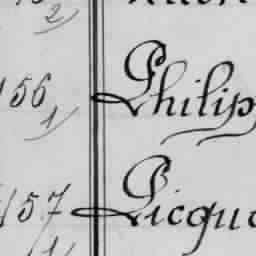 2)
156 Philip
1)
157 Picqu
1)